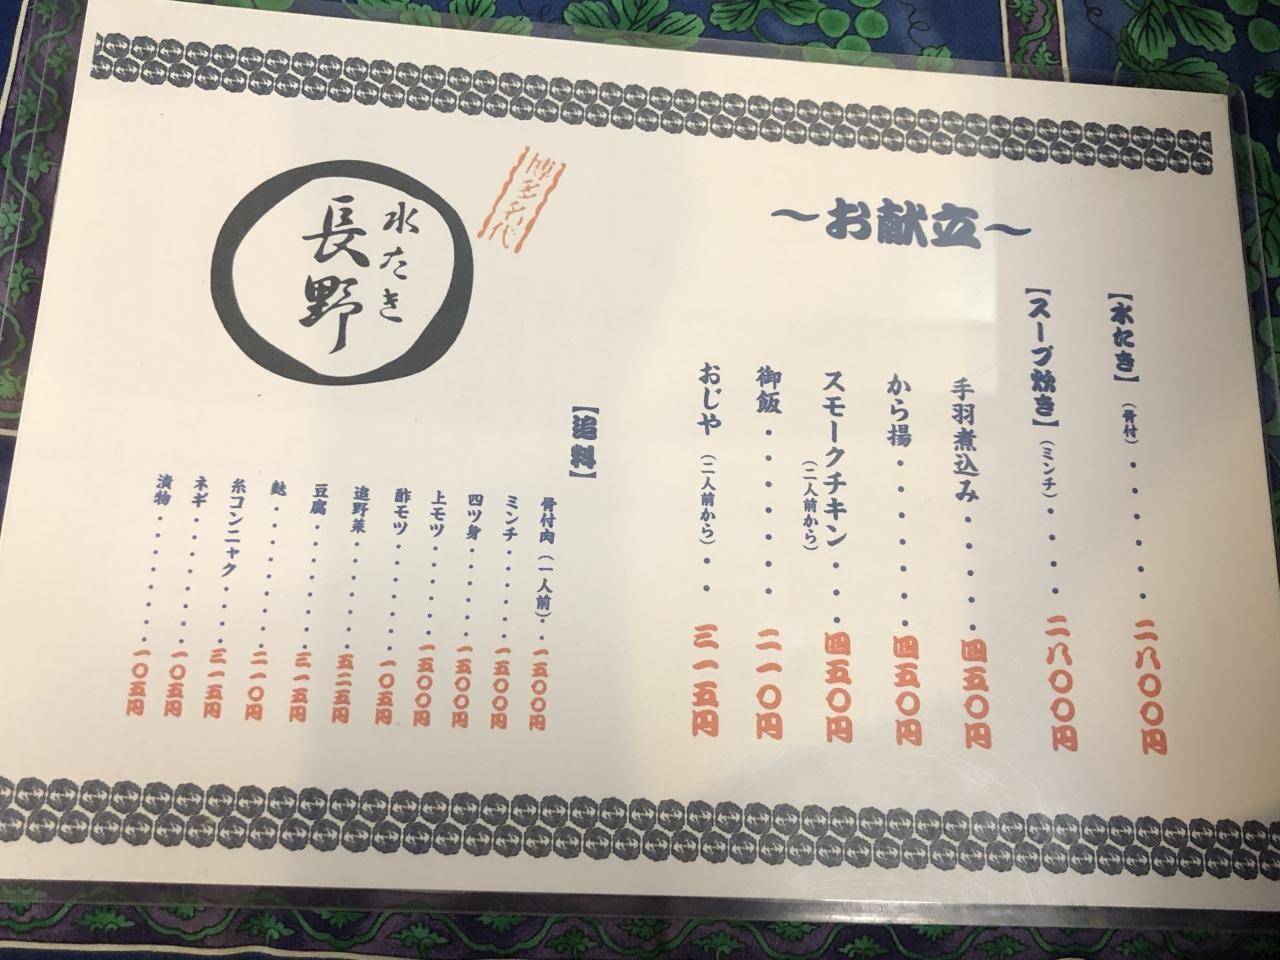 〜お献立〜
【水たき】（骨付）・・・・・・二八〇〇円
【スープ炊き】（ミンチ）・・・・二八〇〇円
手羽煮込み・・・・・四五〇円
から揚・・・・・・・四五〇円
スモークチキン・・・四五〇円
（二人前から）
御飯・・・・・・・二一〇円
おじや（二人前から）・・三一五円
博多名代
水たき
長野
【追料】
骨付肉（一人前）・・一五〇〇円
ミンチ・・・・・・一五〇〇円
四ツ身・・・・・・一五〇〇円
上モツ・・・・・・一五〇〇円
酢モツ・・・・・・一〇五円
追野菜・・・・・・五二五円
豆腐・・・・・・・三一五円
麩・・・・・・・・二一〇円
糸コンニャク・・・・三一五円
ネギ・・・・・・・・一〇五円
漬物・・・・・・・・一〇五円